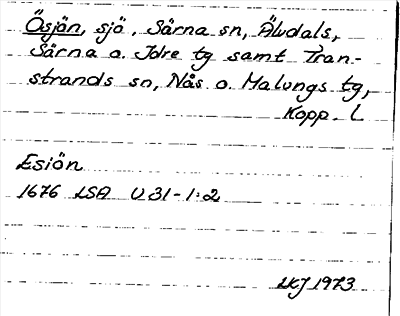 Ösjön, sjö, Särna sn, Älvdals,
Särna o. Idre tg samt Tran-
strands sn, Nås o. Malungs tg,
Kopp. l
Esiön
1676 LSA U 31-1:2
LKJ 1973